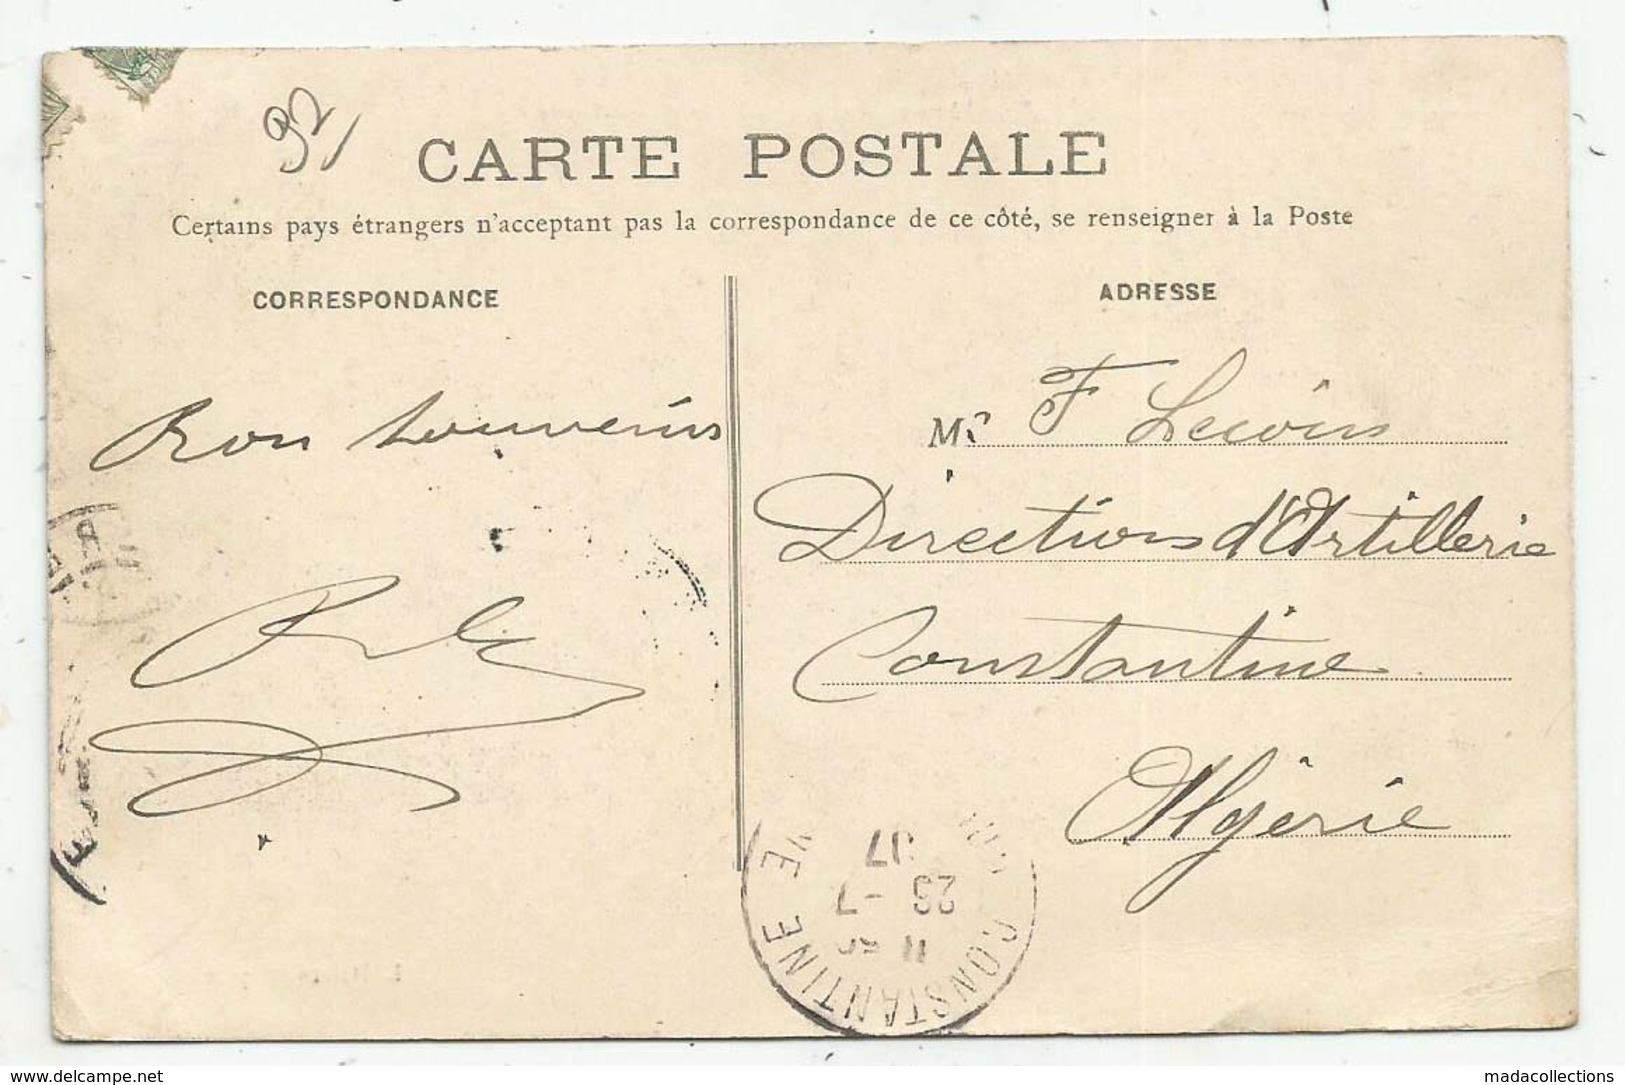 92
CARTE POSTALE
Certains pays étrangers n'acceptant pas la correspondance de ce côté, se renseigner à la Poste
CORRESPONDANCE
Bon souvenir
ADRESSE
Mr F Lecoin
Direction d'Artillerie
Constantine
Algérie
CONSTANTINE
11
23 -7
07
madacollections